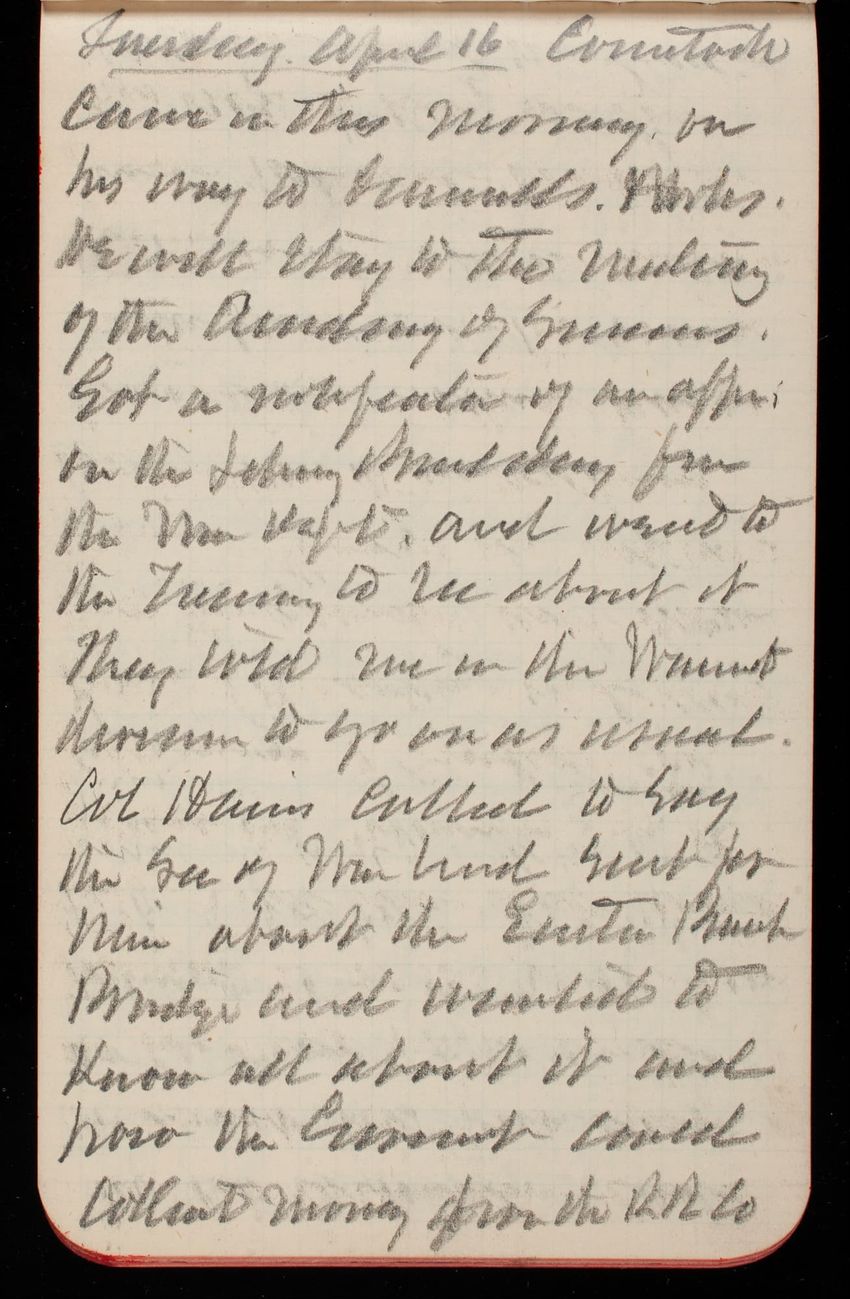 Tuesday April 16 Comstock
Came in this morning, on
his way to
He will stay to the Meeting
of the Academy of Sciences.
Got a notificatn of an appr.
on the Library Building from
the War Dept. and went to
the Treasury to see about it
They told me in the Warrant
division to go on as usual.
Col Hains called to say
the Sec of War had sent for
him about the Eastn Branch
Bridge and wanted to
Know all about it and
how the Govmnt could
Collect money from the RR Co